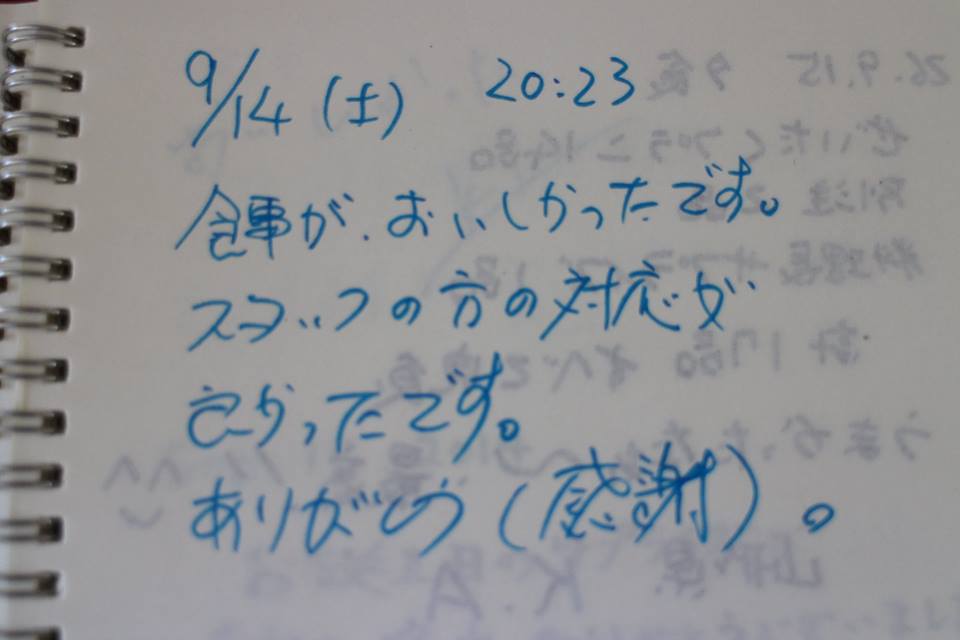 9/14 (土) 20:23
食事が、おいしかったです。
スタッフの方の対応が
良かったです。
ありがとう(感謝)。